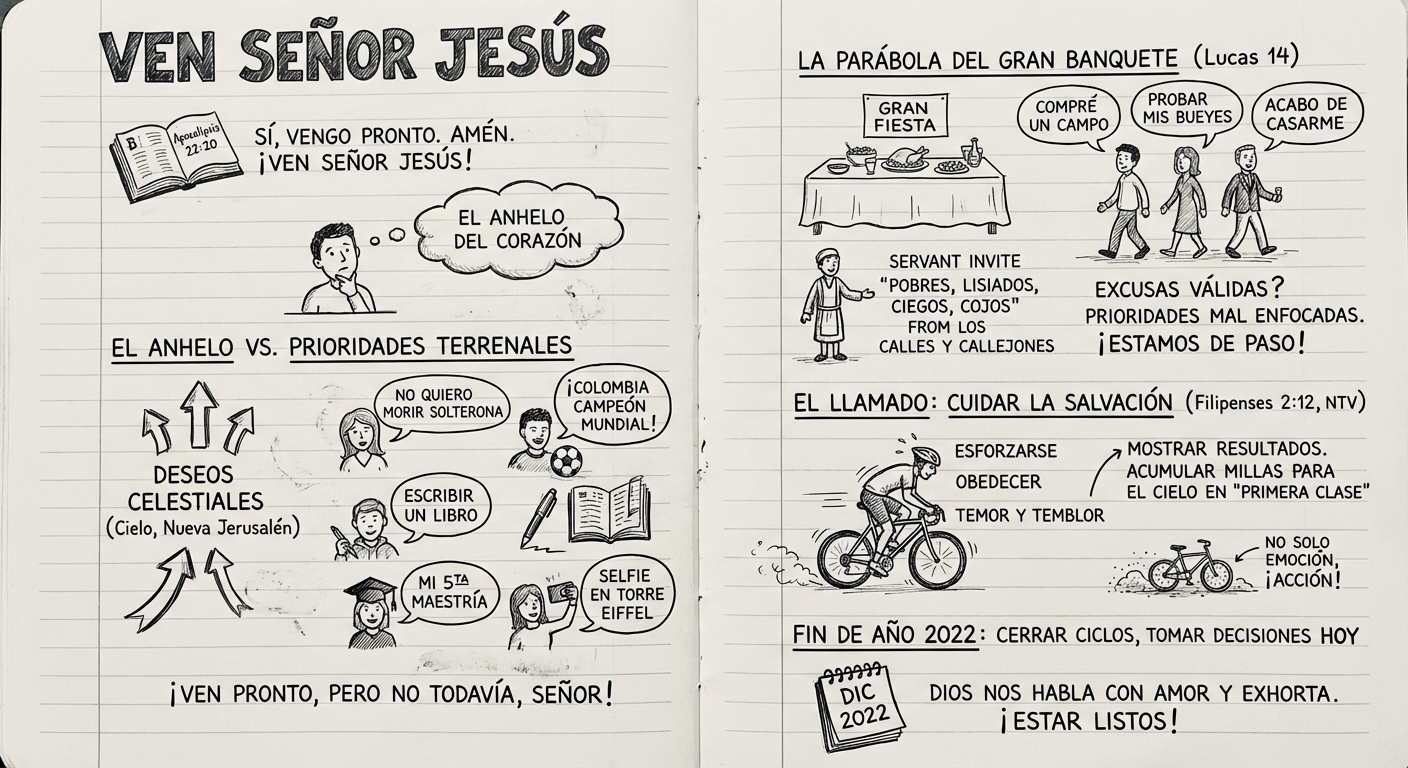 VEN SEÑOR JESÚS
B
Apocalipsis
22:20
SÍ, VENGO PRONTO. AMÉN.
¡VEN SEÑOR JESÚS!
EL ANHELO
DEL CORAZÓN
EL ANHELO VS. PRIORIDADES TERRENALES
DESEOS
CELESTIALES
(Cielo, Nueva Jerusalén)
NO QUIERO
MORIR SOLTERONA
¡COLOMBIA
CAMPEÓN
MUNDIAL!
ESCRIBIR
UN LIBRO
MI 5TA
MAESTRÍA
SELFIE
EN TORRE
EIFFEL
¡VEN PRONTO, PERO NO TODAVÍA, SEÑOR!
LA PARÁBOLA DEL GRAN BANQUETE (Lucas 14)
GRAN
FIESTA
COMPRÉ
UN CAMPO
PROBAR
MIS BUEYES
ACABO DE
CASARME
SERVANT INVITE
"POBRES, LISIADOS,
CIEGOS, COJOS"
FROM LOS
CALLES Y CALLEJONES
EXCUSAS VÁLIDAS?
PRIORIDADES MAL ENFOCADAS.
¡ESTAMOS DE PASO!
EL LLAMADO: CUIDAR LA SALVACIÓN (Filipenses 2:12, NTV)
ESFORZARSE
OBEDECER
TEMOR Y TEMBLOR
MOSTRAR RESULTADOS.
ACUMULAR MILLAS PARA
EL CIELO EN "PRIMERA CLASE"
NO SOLO
EMOCIÓN,
¡ACCIÓN!
FIN DE AÑO 2022: CERRAR CICLOS, TOMAR DECISIONES HOY
DIC
2022
DIOS NOS HABLA CON AMOR Y EXHORTA.
¡ESTAR LISTOS!